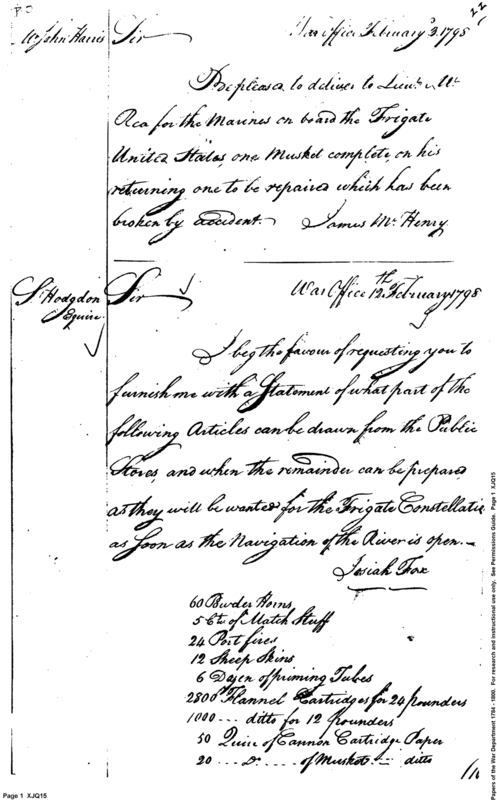 22
Mr John Harris
Sir
War Office February 3. 1798
Be pleased to deliver to Lieut. Mc
Rea for the Marines on board the Frigate
United States, one Musket complete, on his
returning one to be repaired which has been
broken by accident.
James Mc. Henry
Sl Hodgdon
Esquire
Sir
War Office 12th February 1798
I beg the favour of requesting you to
furnish me with a Statement of what part of the
following Articles can be drawn from the Public
Stores, and when the remainder can be prepared
as they will be wanted for the Frigate Constellatio
as soon as the Navigation of the River is open.
Josiah Fox
60 Powder Horns
5 Ct. of Match Stuff
24 Port fires
12 Sheep Skins
6 Dozen of priming Tubes
2800 Flannel Cartridges for 24 pounders
1000 ... ditto for 12 pounders
50 Quire of Cannon Cartridge Paper
20 .. Do .... of Musket ... ditto
Page 1 XJQ15
Papers of the War Department 1784 - 1800. For research and instructional use only. See Permissions Guide. Page 1 XJQ15